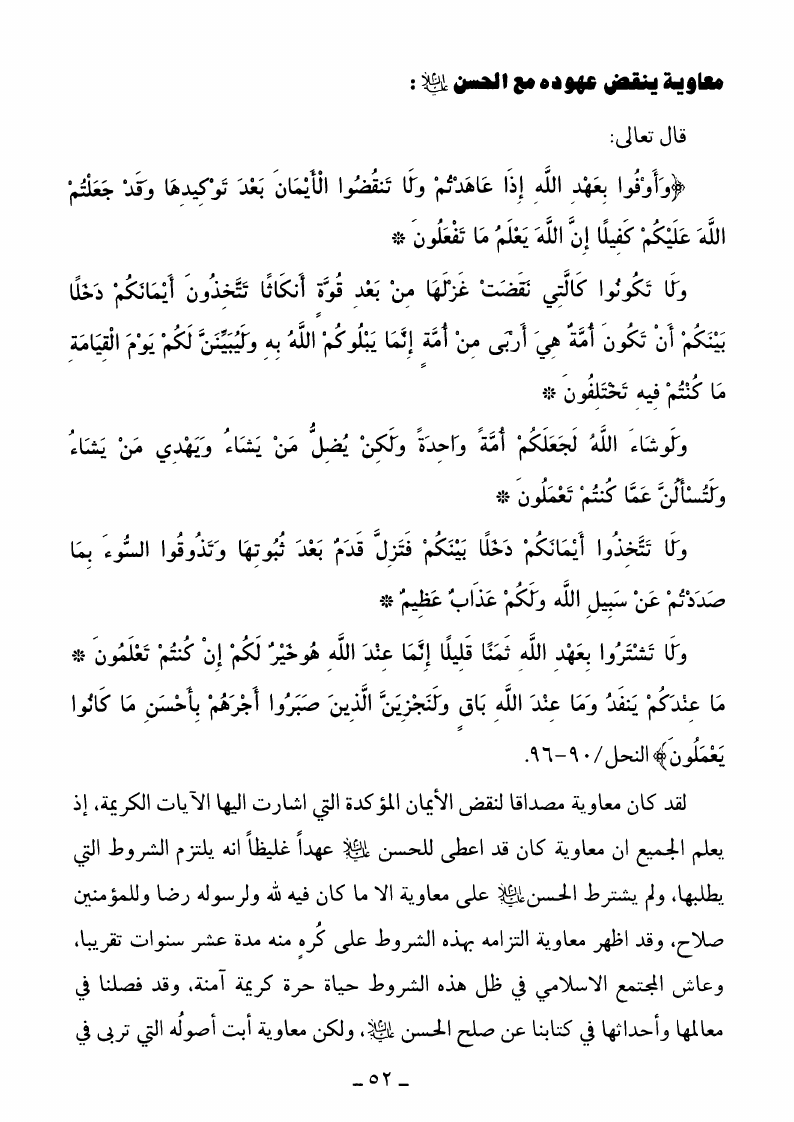 معاوية ينقض عهوده مع الحسن عليه السلام :
قال تعالى:
﴿وَأَوْفُوا بِعَهْدِ اللَّهِ إِذَا عَاهَدْتُمْ وَلَا تَنقُضُوا الْأَيْمَانَ بَعْدَ تَوْكِيدِهَا وَقَدْ جَعَلْتُمْ
اللَّهَ عَلَيْكُمْ كَفِيلًا إِنَّ اللَّهَ يَعْلَمُ مَا تَفْعَلُونَ *
وَلَا تَكُونُوا كَالَّتِي نَقَضَتْ غَزْلَهَا مِنْ بَعْدِ قُوَّةٍ أَنكَاثًا تَتَّخِذُونَ أَيْمَانَكُمْ دَخَلًا
بَيْنَكُمْ أَنْ تَكُونَ أُمَّةٌ هِيَ أَرْبَى مِنْ أُمَّةٍ إِنَّمَا يَبْلُوكُمْ اللَّهُ بِهِ وَلَيُبَيِّنَنَّ لَكُمْ يَوْمَ الْقِيَامَةِ
مَا كُنْتُمْ فِيهِ تَخْتَلِفُونَ *
وَلَوشَاءَ اللَّهُ لَجَعَلَكُمْ أُمَّةً وَاحِدَةً وَلَكِنْ يُضِلُّ مَنْ يَشَاءُ وَيَهْدِي مَنْ يَشَاءُ
وَلَتُسْأَلُنَّ عَمَّا كُنتُمْ تَعْمَلُونَ *
وَلَا تَتَّخِذُوا أَيْمَانَكُمْ دَخَلًا بَيْنَكُمْ فَتَزِلَّ قَدَمٌ بَعْدَ ثُبُوتِهَا وَتَذُوقُوا السُّوءَ بِمَا
صَدَدْتُمْ عَنْ سَبِيلِ اللَّهِ وَلَكُمْ عَذَابٌ عَظِيمٌ *
وَلَا تَشْتَرُوا بِعَهْدِ اللَّهِ ثَمَنًا قَلِيلًا إِنَّمَا عِنْدَ اللَّهِ هُوخَيْرٌ لَكُمْ إِنْ كُنتُمْ تَعْلَمُونَ *
مَا عِندَكُمْ يَنفَدُ وَمَا عِنْدَ اللَّهِ بَاقٍ وَلَنَجْزِيَنَّ الَّذِينَ صَبَرُوا أَجْرَهُمْ بِأَحْسَنِ مَا كَانُوا
يَعْمَلُونَ﴾ النحل/٩٠-٩٦.
لقد كان معاوية مصداقا لنقض الأيمان المؤكدة التي اشارت اليها الآيات الكريمة، إذ
يعلم الجميع ان معاوية كان قد اعطى للحسن عليه السلام عهداً غليظاً انه يلتزم الشروط التي
يطلبها، ولم يشترط الحسن عليه السلام على معاوية الا ما كان فيه لله ولرسوله رضا وللمؤمنين
صلاح، وقد اظهر معاوية التزامه بهذه الشروط على كُرهٍ منه مدة عشر سنوات تقريبا،
وعاش المجتمع الاسلامي في ظل هذه الشروط حياة حرة كريمة آمنة، وقد فصلنا في
معالمها وأحداثها في كتابنا عن صلح الحسن عليه السلام، ولكن معاوية أبت أصولُه التي تربى في
_ ٥٢ _